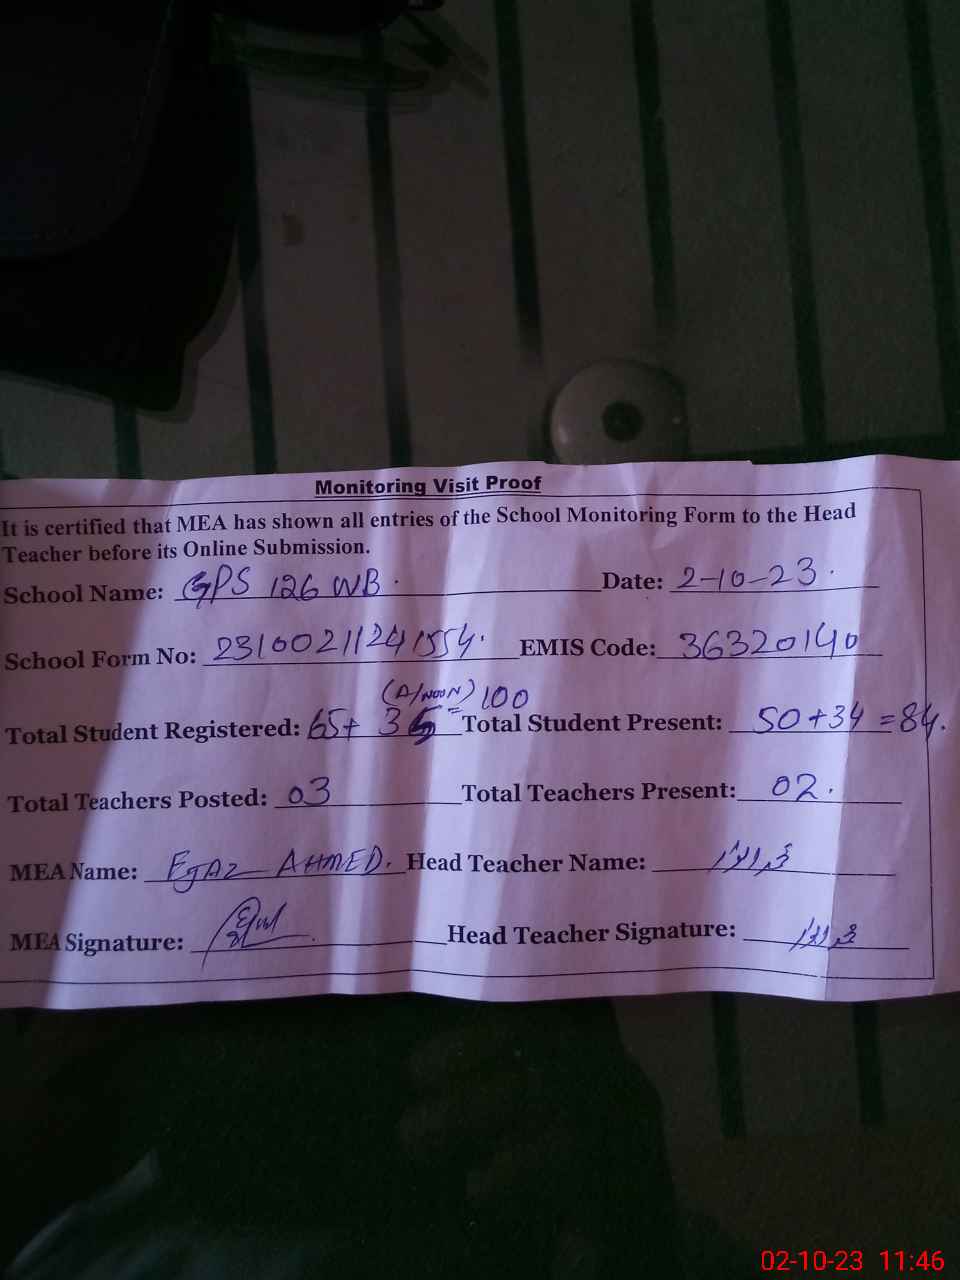 Monitoring Visit Proof
It is certified that MEA has shown all entries of the School Monitoring Form to the Head
Teacher before its Online Submission.
School Name: GPS 126 WB. Date: 2-10-23.
School Form No: 23100211241554. EMIS Code: 36320140
(A/NOON) 100
Total Student Registered: 65+ 35 = Total Student Present: 50+34 = 84.
Total Teachers Posted: 03 Total Teachers Present: 02.
MEA Name: EJAZ AHMED. Head Teacher Name:
MEA Signature: Head Teacher Signature:
02-10-23 11:46